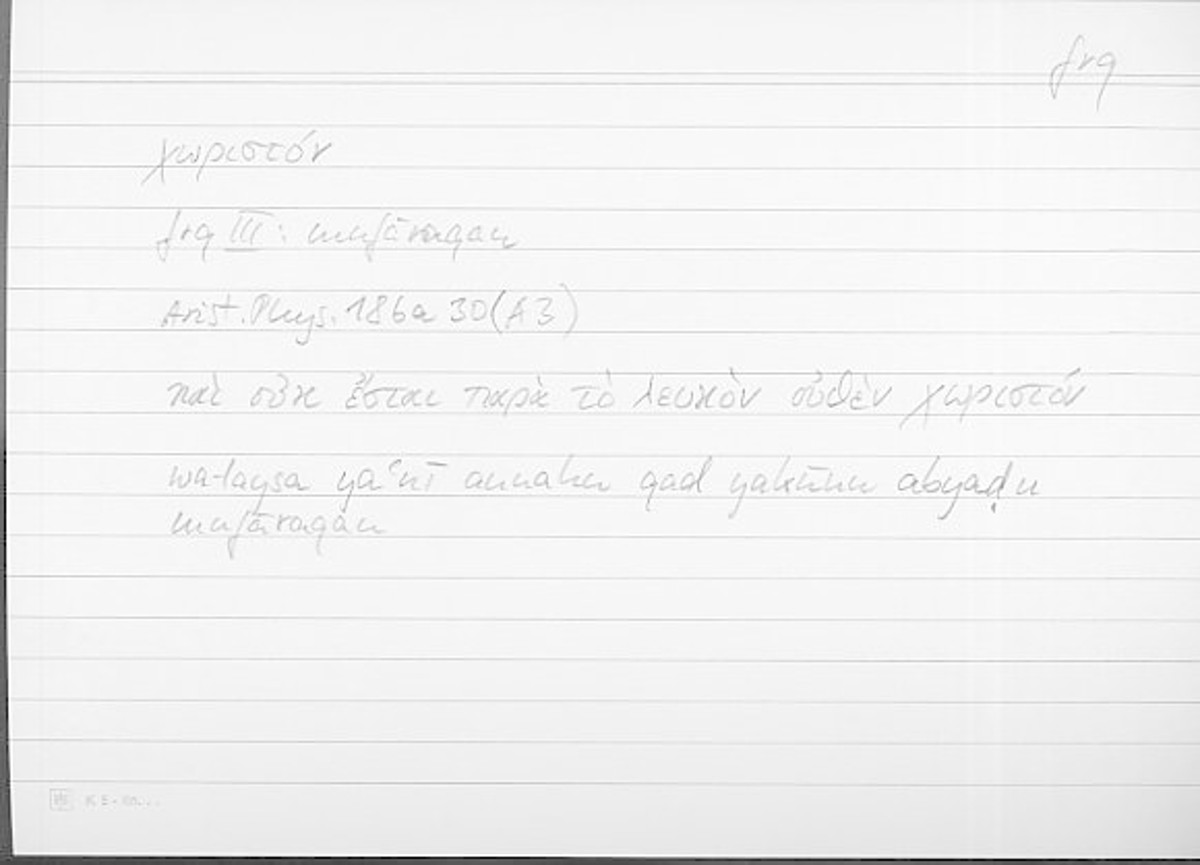 frq
χωριστόν
frq III: mufāraqan
Arist. Phys. 186a 30 (A 3)
καὶ οὐκ ἔσται παρὰ τὸ λευκὸν οὐθὲν χωριστόν
wa-laysa yaʿnī annahu qad yakūnu abyaḍu
mufāraqan